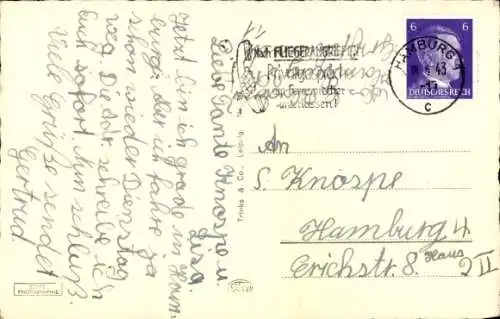 Liebe Tante Knospe u.
Lisa
Jetzt bin ich grade in Ham-
burg. Aber ich fahre ja
schon wieder Dienstag
weg. Die Idr. schreibe ich
Euch sofort. Nun schluß.
Viele Grüße sendet
Gertrud
ECHTE
PHOTOGRAPHIE
Trinks & Co., Leipzig
Bei FLIEGERALARM
HAMBURG
43
C
6 6
DEUTSCHES REICH
An
S. Knospe
Hamburg 4
Erichstr. 8. Haus
2 II